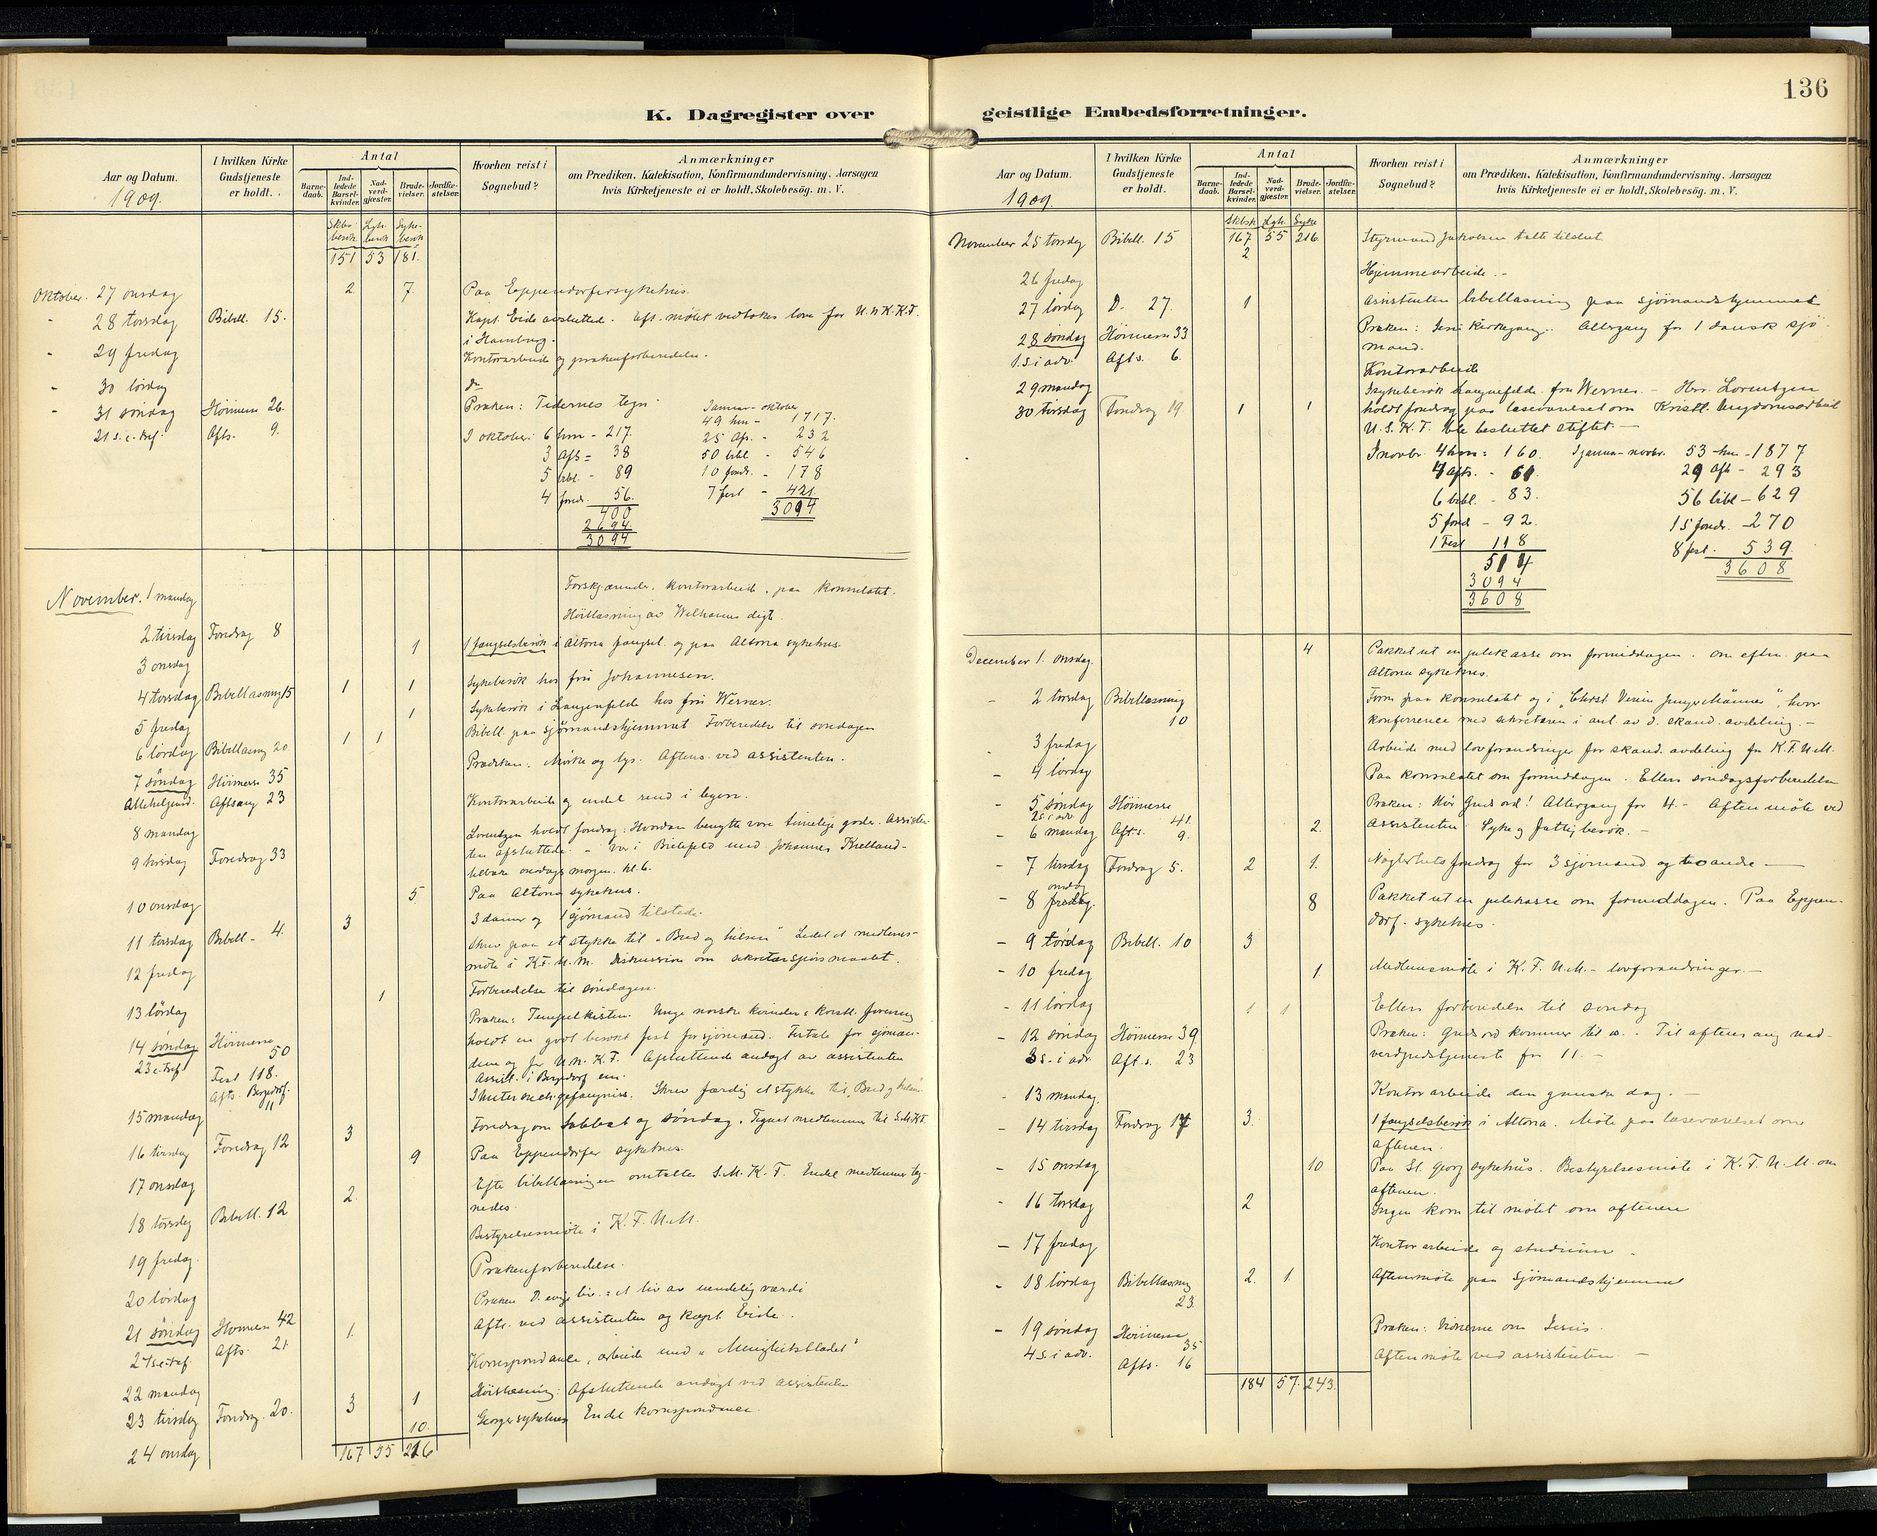 136
K. Dagregister over geistlige Embedsforretninger.
Aar og Datum.
1909.
I hvilken Kirke
Gudstjeneste
er holdt.
Antal
Barne-
daab.
Ind-
ledede
Barsel-
kvinder.
Nad-
verd-
gjæster.
Brude-
vielser.
Jordfæ-
stelser.
Hvorhen reist i
Sognebud?
Anmærkninger
om Prædiken. Katekisation, Konfirmandundervisning. Aarsagen
hvis Kirketjeneste ei er holdt. Skolebesög. m. V.
Skbs- besøk Lgh. besøk Syke- besøk
151 53 181.
Oktober. 27 onsdag 2. 7. Paa Eppendorfersykehus.
" 28 torsdag Bibell. 15. Kapt. Eide avslutted. Aft. møtet vedtokes love for U.N.K.K.F.
i Hamburg.
" 29 fredag Kontorarbeide og prækenforberedelse.
" 30 lördag do
" 31 söndag Höimesse 26. Præken: Tidernes tegn.
21 s. e. tref. Afts. 9.
I oktober: 6 hm - 217.
3 Afs - 38
5 bbl. - 89
4 foredr. 56.
400
2694.
3094
Januar-oktober
49 hm - 1717.
25 Afs. - 232
50 bibl - 546
10 foredr. - 178
7 fest - 421.
3094
November. 1 mandag Forskjærende. kontorarbeide. paa konsulatet.
Höitlæsning av Welhavens digt.
2 tirsdag Foredrag 8 1 1 fængselsbesök i Altona fængsel. og paa Altona sykehus.
3 onsdag Sykebesök hos fru Johannesen.
4 torsdag Bibellæsning 15 1 1 Sykebesök i Langenfelde hos fru Werner.
5 fredag 1 Bibell. paa sjömandshjemmet Forberedelse til söndagen
6 lördag Bibellæsning 20 1 1 Prædiken. Mörke og lys. Aftens. ved assistenten.
7 söndag Höimesse 35
Allehelgend. Aftsang 23 Kontorarbeide og endel rend i byen.
8 mandag Lorentzen holdt foredrag: Hvordan benytte vore timelige goder. Assisten-
ten afsluttede. - Var i Bielefeld med Johannes Kielland -
9 tirsdag Foredrag 33 tilbake onsdags morgen. kl. 6.
10 onsdag 5 Paa Altona sykehus.
11 torsdag Bibell - 4. 3 3 damer og 1 sjömand tilstede.
12 fredag Skrev paa et stykke til "Bud og hilsen" Ledet et medlems-
møte i K.F.U.M. Diskussion om sekretærspörsmaalet.
13 lördag 1 Forberedelse til söndagen.
14 söndag Höimesse 50 Præken: Tempelkisten. Unge norske kvinders kristl. forening
23 e. tref Fest 118. holdt en godt besökt fest for sjömænd. Firtale for sjömæn-
dene og for U.N.K.F. Afsluttende andagt av assistenten
Afts. Bergedorf. 11 Assist. i Bergedorf em.
15 mandag I Untersuch.gefangnis. Skrev færdig et stykke til "Bud og hilsen"
16 tirsdag Foredrag 12 3 Foredrag om Sabbat og söndag. Tegnet medlemmer til S.M.K.F.
17 onsdag 9 Paa Eppendorfer sykehus.
18 torsdag Bibell. 12 2. Efter bibellæsningen omtaltes S.M.K.F. Endel medlemmer teg-
nedes.
19 fredag. Bestyrelsesmöte i K.F.U.M.
20 lördag Prækenforberedelse.
21 söndag Höimesse 42 1. Præken D. evige liv. = et liv av uendelig værdi
24 s. e. tref Afts. 21. Afts. ved assistenten og kapt. Eide.
22 mandag Korrespondance, arbeide med "Menighetsbladet"
23 tirsdag Foredrag. 20. 3 1 Höitlæsning: Afsluttende andagt ved assistenten
24 onsdag 10. Georgersykehus Endel korrespondance.
167 55 216
Aar og Datum.
1909.
I hvilken Kirke
Gudstjeneste
er holdt.
Antal
Barne-
daab.
Ind-
ledede
Barsel-
kvinder.
Nad-
verd-
gjæster.
Brude-
vielser.
Jordfæ-
stelser.
Hvorhen reist i
Sognebud?
Anmærkninger
om Prædiken. Katekisation, Konfirmandundervisning. Aarsagen
hvis Kirketjeneste ei er holdt. Skolebesög. m. V.
Skbsk Lgh. Syke
167 55 216.
November 25 torsdag Bibell. 15 2 Styrmand Jakobsen talte tilslut
26 fredag Hjemmearbeide. -
27 lördag D. 27. 1 Assistenten bibellæsning paa sjömandshjemmet
28 söndag Höimesse 33 Præken: Jesu kirkegang. Altergang for 1 dansk sjö-
1 s. i adv. Afts. 6. mand.
29 mandag Kontorarbeide
30 tirsdag Foredrag 19. 1 1 Sykebesök Langenfelde. fru Werner. - Hr. Lorentzen
holdt foredrag paa læseværelset om Kristl. Ungdomsarbeid
U.S.K.F. ble besluttet stiftet. -
I novbr. 4 hm = 160.
4 Afts. - 61
6 bibl. - 83.
5 foredr - 92.
1 Fest 118
514
3094
3608
I januar - novbr. 53 - hm - 1877
29 Aft - 293
56 bibl - 629
15 foredr. - 270
8 fest. - 539.
3608
December 1. onsdag. 4 Pakket ut en julekasse om formiddagen. Om eftm. paa
Altona sykehus.
- 2 torsdag Bibellæsning 10 Form. paa konsulatet og i "Christ. Verein Junger Männer", hvor
konferrence med sekretæren i anl. av d. skand. avdeling. -
3 fredag Arbeide med lovforandringer for skand. avdeling for K.F.U.M.
- 4 lördag Paa konsulatet om formiddagen. Ellers söndagsforberedelse
- 5 söndag Höimesse 41 Præken: Hör Guds ord! Altergang for 4. - Aftenmöte ved
2 s. i adv.
- 6 mandag Afts. 9. 2. Assistenten Syke og Fattigbesök. -
- 7 tirsdag Foredrag 5. 2 1. Nögterhetsforedrag for 3 sjömænd og to andre -
- 8 onsdag 8 Pakket ut en julekasse om formiddagen. Paa Eppen-
dorf. sykehus.
- 9 torsdag Bibell. 10 3
- 10 fredag 1. Medlemsmöte i K.F.U.M. - lovforandringer. -
- 11 lördag 1 1 Ellers forberedelse til söndag
- 12 söndag Höimesse 39 Præken: Guds ord kommer til os. Til aftensang nad-
3 s. i adv Aft. s. 23 verdgudstjeneste for 11. -
- 13 mandag. Kontorarbeide den ganske dag. -
- 14 tirsdag Foredrag 14 3. 1 fængselsbesök i Altona. Möte paa læseværelset om
aftenen.
- 15 onsdag 10 Paa St. Georg sykehus. Bestyrelsesmöte i K.F.U.M. om
aftenen.
- 16 torsdag 2 Ingen kom til mötet om aftenen
- 17 fredag Kontorarbeide og studium -
- 18 lördag Bibellæsning 23. 2. 1. Aftenmöte paa Sjömandshjemmet
- 19 söndag Höimesse 35 Præken: Vidnerne om Jesus.
4 s. i adv. Afts. 16 Aftenmöte ved assistenten. -
184 57. 243.